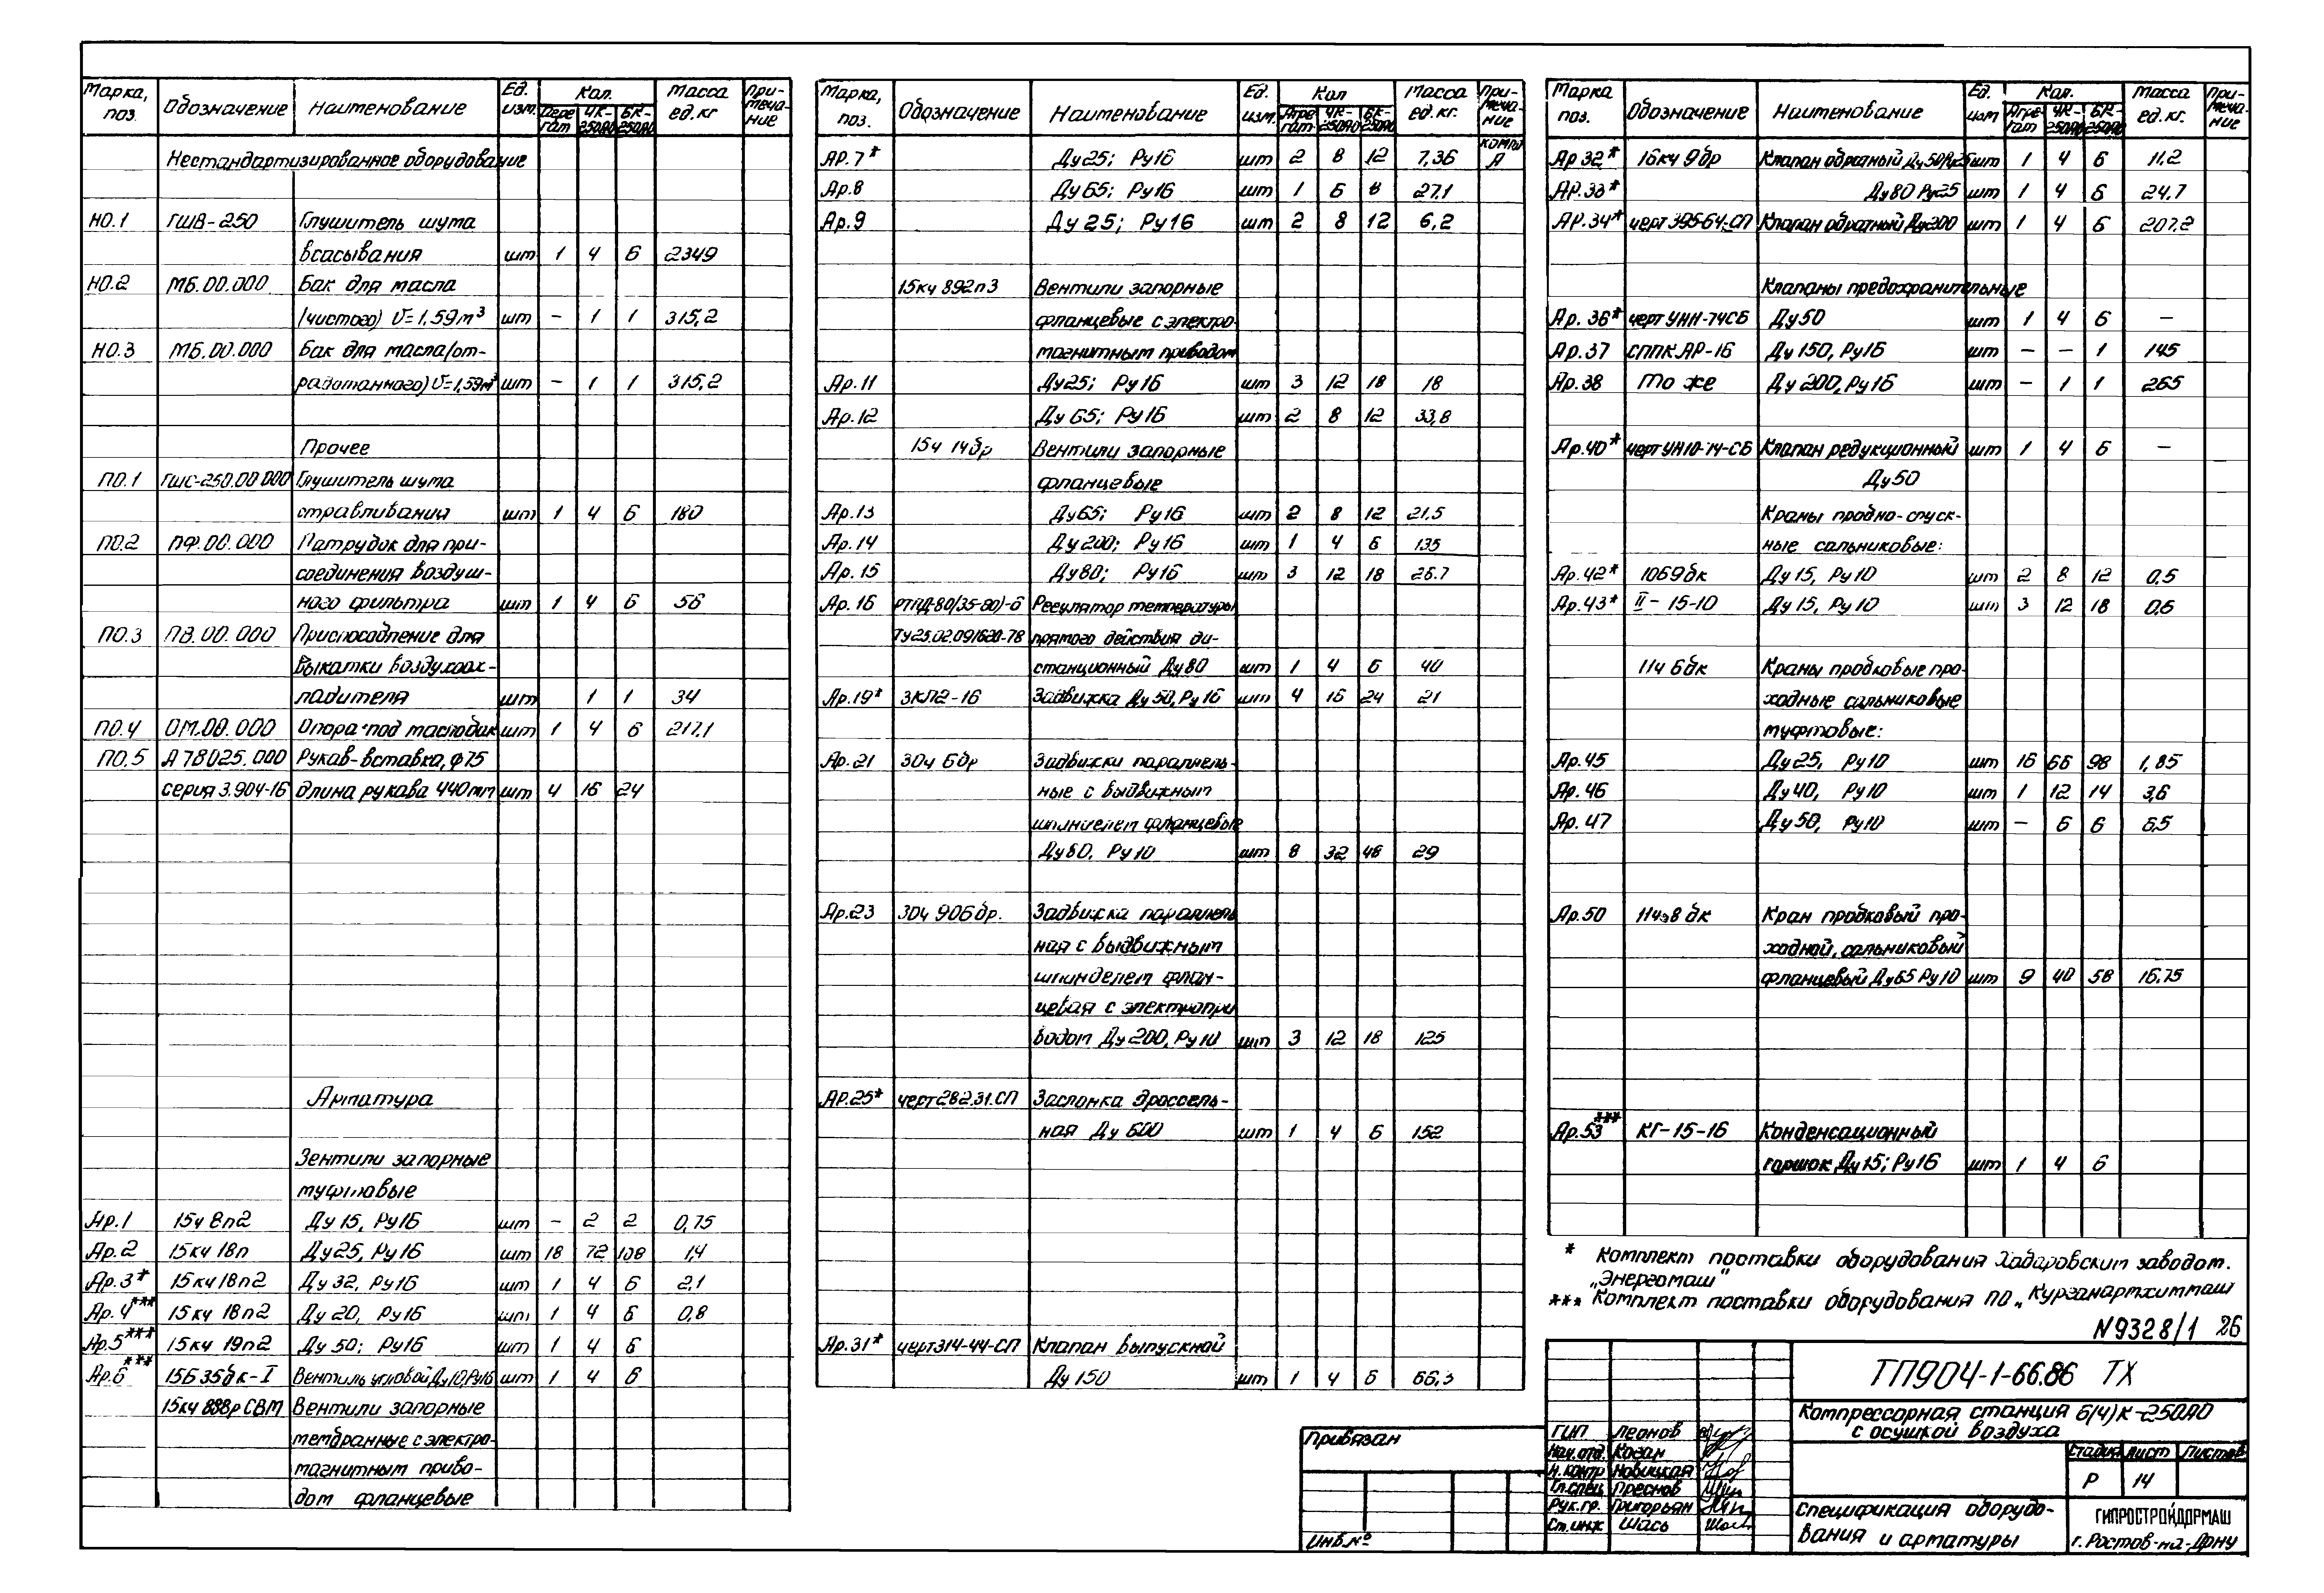 Марка, поз. Обозначение Наименование Ед. изм. Кол. Агрегат 4К-250А0 6К-250А0 Масса ед. кг Примечание
Нестандартизированное оборудование
НО.1 ГШВ-250 Глушитель шума
всасывания шт 1 4 6 2349
НО.2 МБ.00.000 Бак для масла
(чистого) V=1,59м³ шт - 1 1 315,2
НО.3 МБ.00.000 Бак для масла(от-
работанного) V=1,59м³ шт - 1 1 315,2
Прочее
ПО.1 ГШС-250.00 000 Глушитель шума
стравливания шт 1 4 6 180
ПО.2 ПФ.00.000 Патрубок для при-
соединения воздуш-
ного фильтра шт 1 4 6 56
ПО.3 ПВ.00.000 Приспособление для
выкатки воздухоох-
ладителя шт 1 1 34
ПО.4 ОМ.00.000 Опора под маслобак шт 1 4 6 217,1
ПО.5 А78025.000 Рукав-вставка, ф75
серия 3.904-16 длина рукава 440мм шт 4 16 24
Арматура
Вентили запорные
муфтовые
Ар.1 15ч 8п2 Ду 15, Ру16 шт - 2 2 0,75
Ар.2 15кч 18п Ду25, Ру16 шт 18 72 108 1,4
Ар.3* 15кч18п2 Ду 32, Ру16 шт 1 4 6 2,1
Ар.4*** 15кч 18п2 Ду 20, Ру16 шт 1 4 6 0,8
Ар.5*** 15кч 19п2 Ду 50; Ру16 шт 1 4 6
Ар.6*** 15Б 35бк-I Вентиль угловой Ду10,Ру16 шт 1 4 6
15кч 888р СВМ Вентили запорные
мембранные с электро-
магнитным приво-
дом фланцевые
Марка, поз. Обозначение Наименование Ед. изм. Кол Агрегат 4К-250А0 6К-250А0 Масса ед. кг. Примечание
Ар.7* Ду25; Ру16 шт 2 8 12 7,36
Ар.8 Ду65; Ру16 шт 1 6 8 27,1
Ар.9 Ду 25; Ру16 шт 2 8 12 6,2
15кч 892п3 Вентили запорные
фланцевые с электро-
магнитным приводом
Ар.11 Ду25; Ру16 шт 3 12 18 18
Ар.12 Ду 65; Ру16 шт 2 8 12 33,8
15ч 14бр Вентили запорные
фланцевые
Ар.13 Ду65; Ру16 шт 2 8 12 21,5
Ар.14 Ду200; Ру16 шт 1 4 6 135
Ар.15 Ду80; Ру16 шт 3 12 18 26.7
Ар.16 РТПД-80(35-80)-6 Регулятор температуры
ТУ25.02.091620-78 прямого действия ди-
станционный Ду80 шт 1 4 6 40
Ар.19* ЗКЛ2-16 Задвижка Ду50, Ру16 шт 4 16 24 21
Ар.21 30ч 6бр Задвижки параллель-
ные с выдвижным
шпинделем фланцевые
Ду80, Ру10 шт 8 32 48 29
Ар.23 30ч 906бр. Задвижка параллель-
ная с выдвижным
шпинделем флан-
цевая с электропри
водом Ду200, Ру10 шт 3 12 18 125
Ар.25* черт282.31.СП Заслонка дроссель-
ная Ду 600 шт 1 4 6 152
Ар.31* черт314-44-СП Клапан выпускной
Ду150 шт 1 4 6 66,3
Марка поз. Обозначение Наименование Ед. изм Кол. Агрегат 4К-250А0 6К-250А0 Масса ед. кг. Примечание
Ар 32* 16кч 9бр Клапан обратный Ду50Ру25 шт 1 4 6 11,2
Ар.33* Ду80 Ру25 шт 1 4 6 24,7
Ар.34* черт395-64-СП Клапан обратный Ду200 шт 1 4 6 207,2
Клапаны предохранительные
Ар.36* черт УН11-74СБ Ду50 шт 1 4 6 -
Ар.37 СППК АР-16 Ду150, Ру16 шт - - 1 145
Ар.38 То же Ду200, Ру16 шт - 1 1 265
Ар.40* черт УН10-74-СБ Клапан редукционный шт 1 4 6 -
Ду50
Краны пробно-спуск-
ные сальниковые:
Ар.42* 10б9бк Ду15, Ру10 шт 2 8 12 0,5
Ар.43* II-15-10 Ду15, Ру10 шт 3 12 18 0,6
11ч 6бк Краны пробковые про-
ходные сальниковые
муфтовые:
Ар.45 Ду25, Ру10 шт 16 66 98 1,85
Ар.46 Ду40, Ру10 шт 1 12 14 3,6
Ар.47 Ду50, Ру10 шт - 6 6 6,5
Ар.50 11ч8бк Кран пробковый про-
ходной, сальниковый
фланцевый Ду65 Ру10 шт 9 40 58 16,75
Ар.53*** КГ-15-16 Конденсационный
горшок Ду15; Ру16 шт 1 4 6
* Комплект поставки оборудования Хабаровским заводом.
„Энергомаш"
*** Комплект поставки оборудования ПО „Курганармхиммаш
N9328/1 26
ТП904-1-66.86 ТХ
Компрессорная станция 6(4)К-250А0
с осушкой воздуха
Стадия Лист Листов
Р 14
Спецификация оборудо-
вания и арматуры
ГИПРОСТРОЙДОРМАШ
г. Ростов-на-Дону
Привязан
Инв.№
ГИП Леонов
Нач.отд. Коган
Н.контр Новицкая
Гл.спец Преснов
Рук.гр. Григорьян
Ст.инж Шась